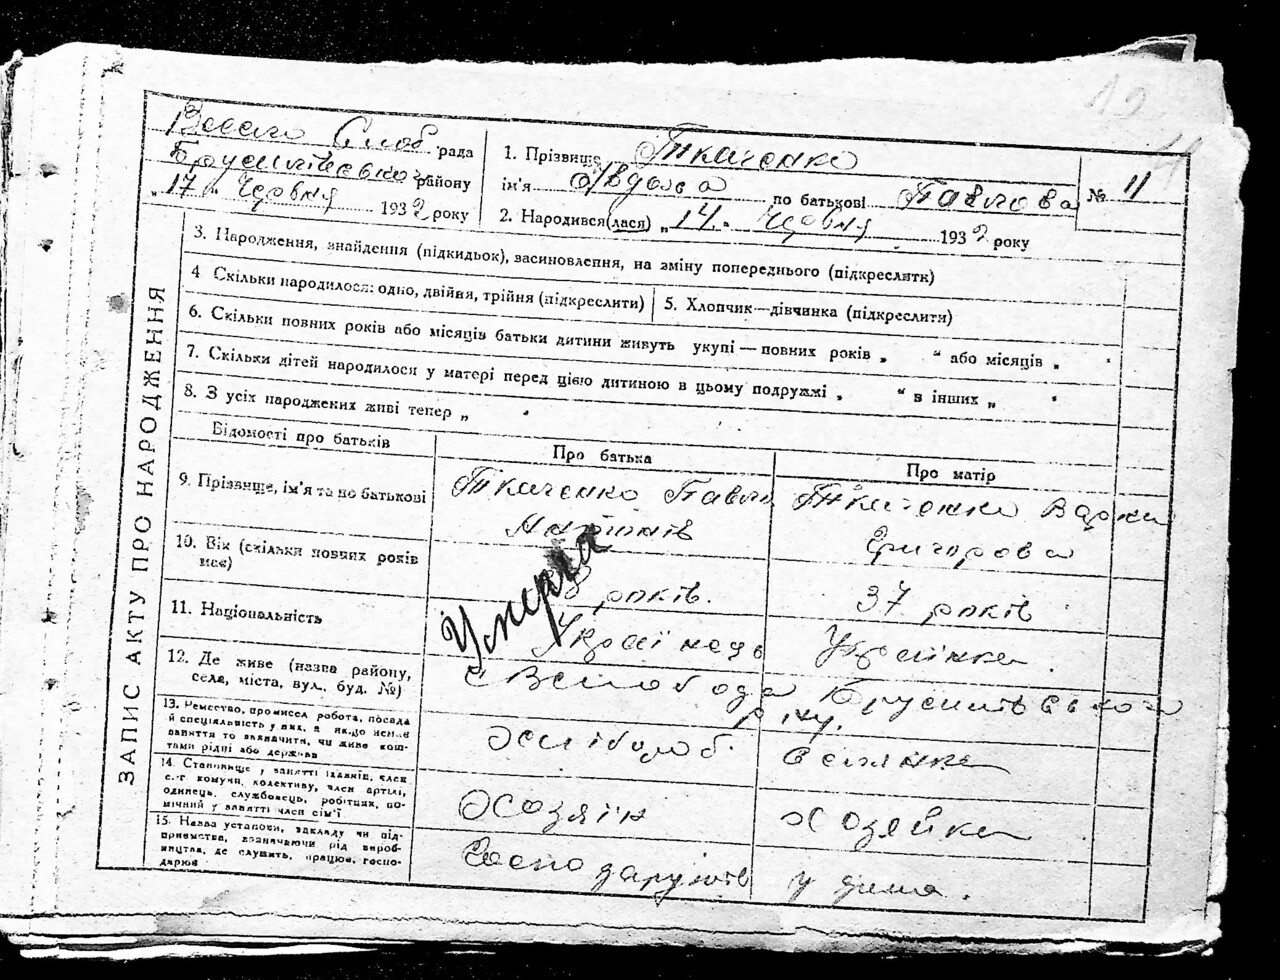 19
11
Весело Слоб рада
Брусилівського району
„17“ Червня 1932 року
1. Прізвище Ткаченко
ім'я Явдоха по батькові Павлова
2. Народився(лася) „14“ Червня 1932 року
№ 11
ЗАПИС АКТУ ПРО НАРОДЖЕННЯ
3. Народження, знайдення (підкидьок), засиновлення, на зміну попереднього (підкреслити)
4 Скільки народилося: одно, двійня, трійня (підкреслити)
5. Хлопчик—дівчинка (підкреслити)
6. Скільки повних років або місяців батьки дитини живуть укупі — повних років „ “ або місяців „ “
7. Скільки дітей народилося у матері перед цією дитиною в цьому подружжі „ “ в інших „ “
8. З усіх народжених живі тепер „ “
Відомості про батьків
Про батька
Про матір
9. Прізвище, ім'я та по батькові
Ткаченко Павло
Ткаченко Варка
Григорова
10. Вік (скільки повних років має)
років.
37 років
Умерла
11. Національність
Українець
Українка.
12. Де живе (назва району,
села, міста, вул., буд. №)
с Вслобода Брусилівського
р-ну.
13. Ремество, промисел робота, посада
й спеціальність у них, а якщо немає
заняття то зазначити, чи живе кош-
тами рідні або держави
Хлібороб.
Селянка
14. Становище у занятті (хазяїн, член
с.-г комуни, колективу, член артілі,
одинець, службовець, робітник, по-
мічний у занятті член сім'ї
Хозяїн
Хозяйка
15. Назва установи, закладу чи під-
приємства, зазначаючи рід вироб-
ництва, де служить, працює, госпо-
дарює
Господарують у дома.